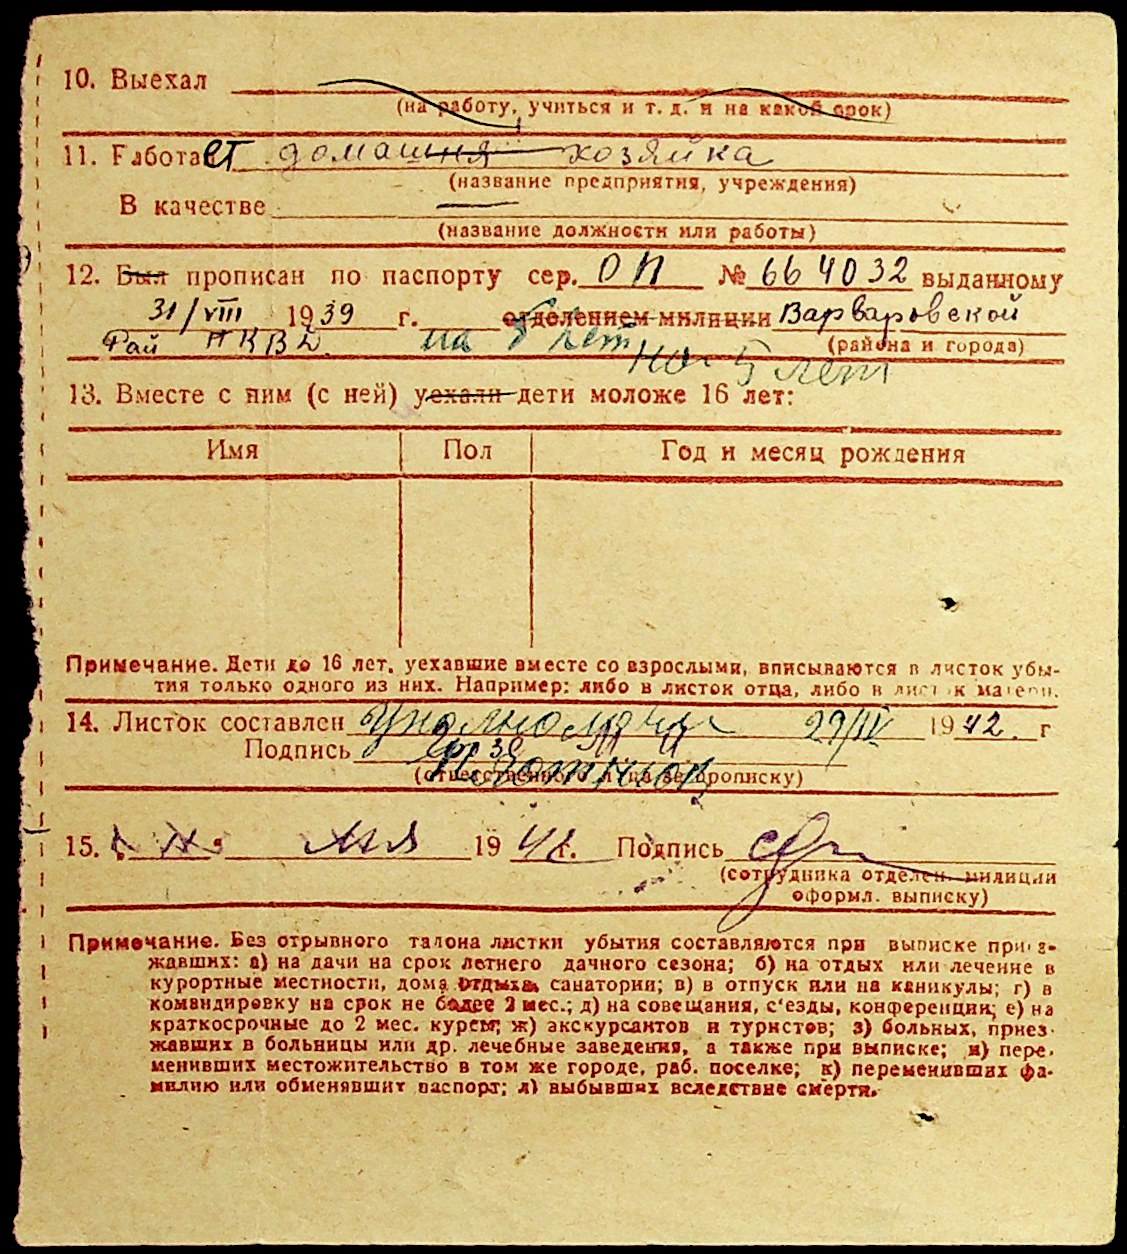 10. Выехал
(на работу, учиться и т. д. и на какой срок)
11. Работает домашняя хозяйка
(название предприятия, учреждения)
В качестве —
(название должности или работы)
12. Был прописан по паспорту сер. ОП № 664032 выданному
31/VIII 1939 г. отделением милиции Варваровской
Рай НКВД. на 5 лет (района и города)
на 5 лет
13. Вместе с ним (с ней) уехали дети моложе 16 лет:
Имя Пол Год и месяц рождения
Примечание. Дети до 16 лет, уехавшие вместе со взрослыми, вписываются в листок убы-
тия только одного из них. Например: либо в листок отца, либо в листок матери.
14. Листок составлен 29/IV 1942. г
Подпись
(ответственного лица за прописку)
15. мая 194 г. Подпись
(сотрудника отделен. милиции
оформл. выписку)
Примечание. Без отрывного талона листки убытия составляются при выписке приез-
жавших: а) на дачи на срок летнего дачного сезона; б) на отдых или лечение в
курортные местности, дома отдыха, санатории; в) в отпуск или на каникулы; г) в
командировку на срок не более 2 мес.; д) на совещания, с'езды, конференции; е) на
краткосрочные до 2 мес. курсы; ж) экскурсантов и туристов; з) больных, приез-
жавших в больницы или др. лечебные заведения, а также при выписке; и) пере-
менивших местожительство в том же городе, раб. поселке; к) переменивших фа-
милию или обменявшит паспорт; л) выбывших вследствие смерти.